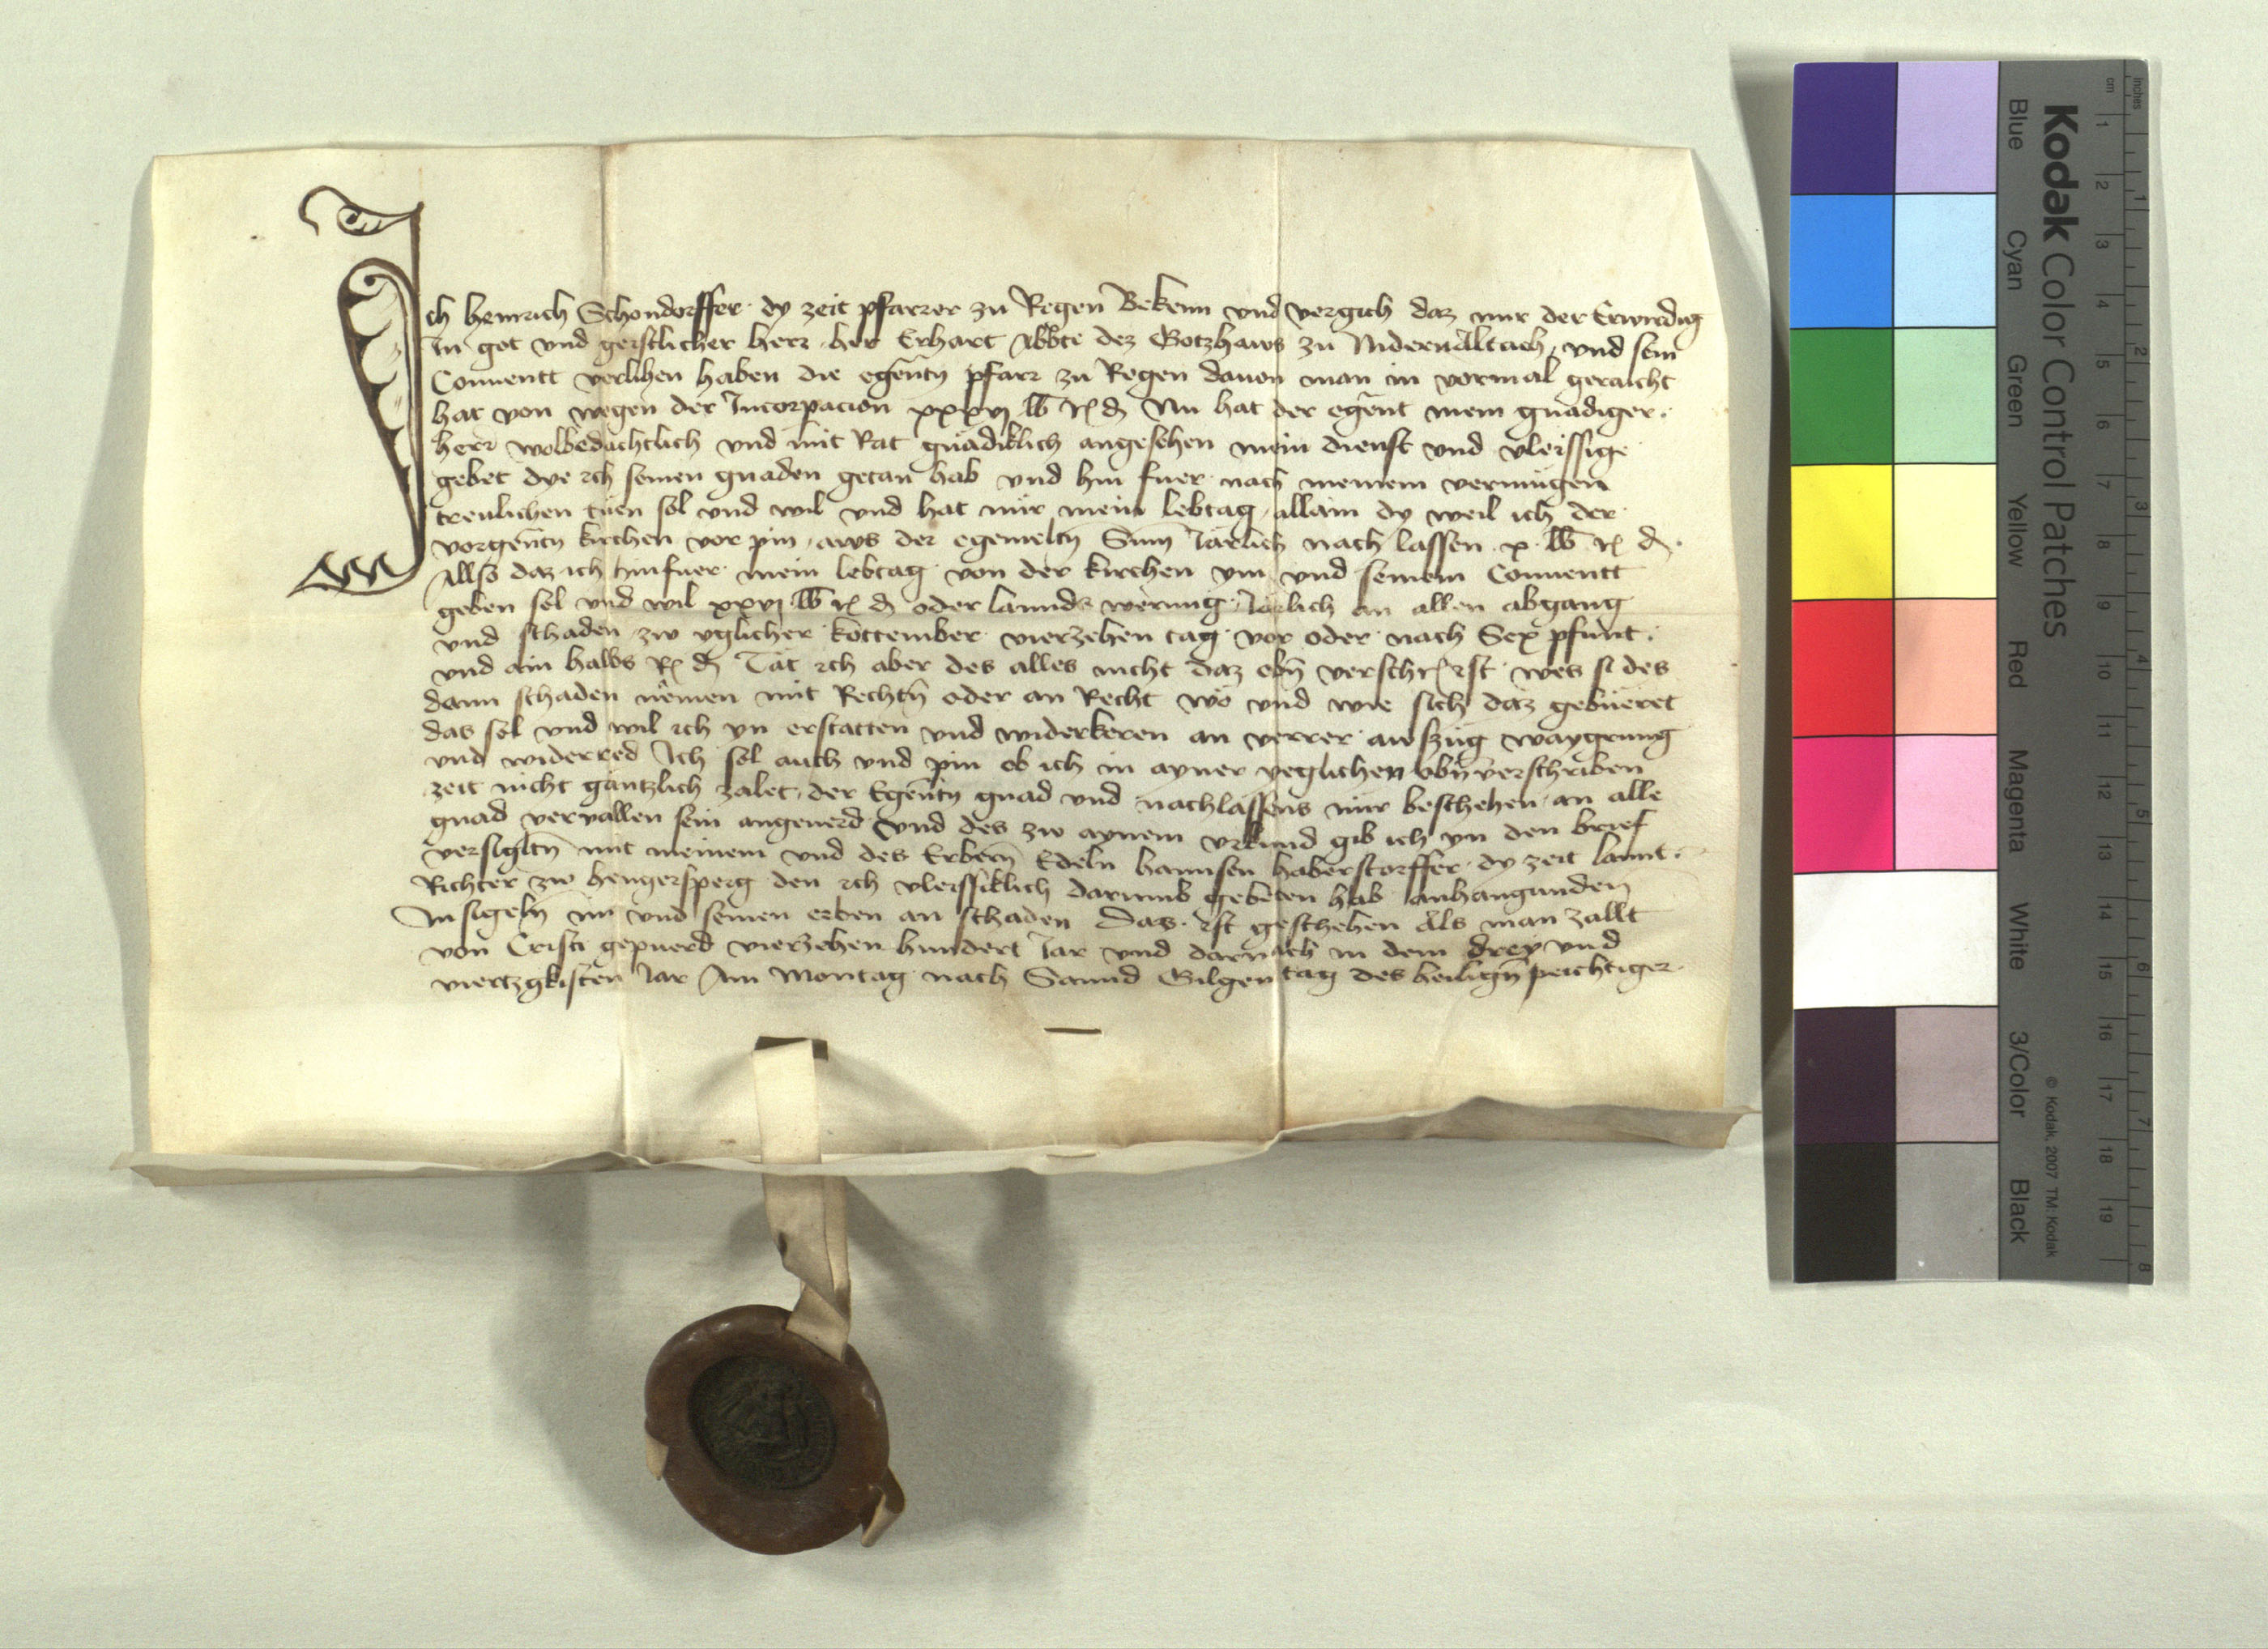 Ich heinrich Schondorffer dy zeit pfarrer zu Regen Bekenn vnd vergich daz mir der Erwirdig
In got vnd geistlicher herr her Erhart Abbte dez Gotzhaws zu Nidernaltach vnd sein
Conuentt verlihen haben die egenñtn pfarr zu Regen dauon man in vormal geraicht
hat von wegen der Incorpacion xxxvj lb R d Nu hat der egent mein gnädiger
herr wolbedächtlich vnd mit Rat gnädiklich angesehen mein dienst vnd vleissige
gebet dye ich seinen gnaden getan hab vnd hin fuer nach meinem vermügen
treulichen tuen sol vnd wil vnd hat mir mein lebtag allain dy weil ich der
vorgentn kirchen vor pin aws der egemeltn Sum Järlich nach lassen x lb R d
Allso daz ich hinfuer mein lebtag von der kirchen ym vnd seinem Conuentt
geben sol vnd wil xxvj lb R d oder lannds werung Järlich an allen abgang
vnd schaden zw yglicher kottember vierzehen tag vor oder nach Sex pfunt
vnd ain halbs R d Tät ich aber des alles nicht daz obn verschr ist wes si des
dann schaden nemen mit Rechtn oder an Recht wo vnd wie sich daz gebueret
das sol vnd wil ich yn erstatten vnd widerkeren an verrer awszüg waygrung
vnd widerred Ich sol auch vnd pin ob ich in ayner yeglichen obn verschriben
zeit nicht gantzlich zalet der Egentn gnad vnd nachlassens mir beschehen an alle
gnad vervallen sein angeuerd Vnd des zw aynem vrkund gib ich yn den brief
versigltn mit meinem vnd des Erbern Edeln hannsen haberstorffer dy zeit lannt
Richter zw hengersperg den ich vleissiklich darumb gebeten hab anhangunden
Insigeln im vnd seinen erben an schaden Daz ist geschehen Als man zallt
von Cristi gepuerd vierzehen hundert Jar vnd darnach in dem drey vnd
viertzgkisten Jar Am Montag nach Sannd Gilgen tag des heilign peichtiger
Kodak Color Control Patches
Blue Cyan Green Yellow Red Magenta White 3/Color Black
© Kodak, 2007 TM: Kodak
cm 1 2 3 4 5 6 7 8 9 10 11 12 13 14 15 16 17 18 19
Inches 1 2 3 4 5 6 7 8